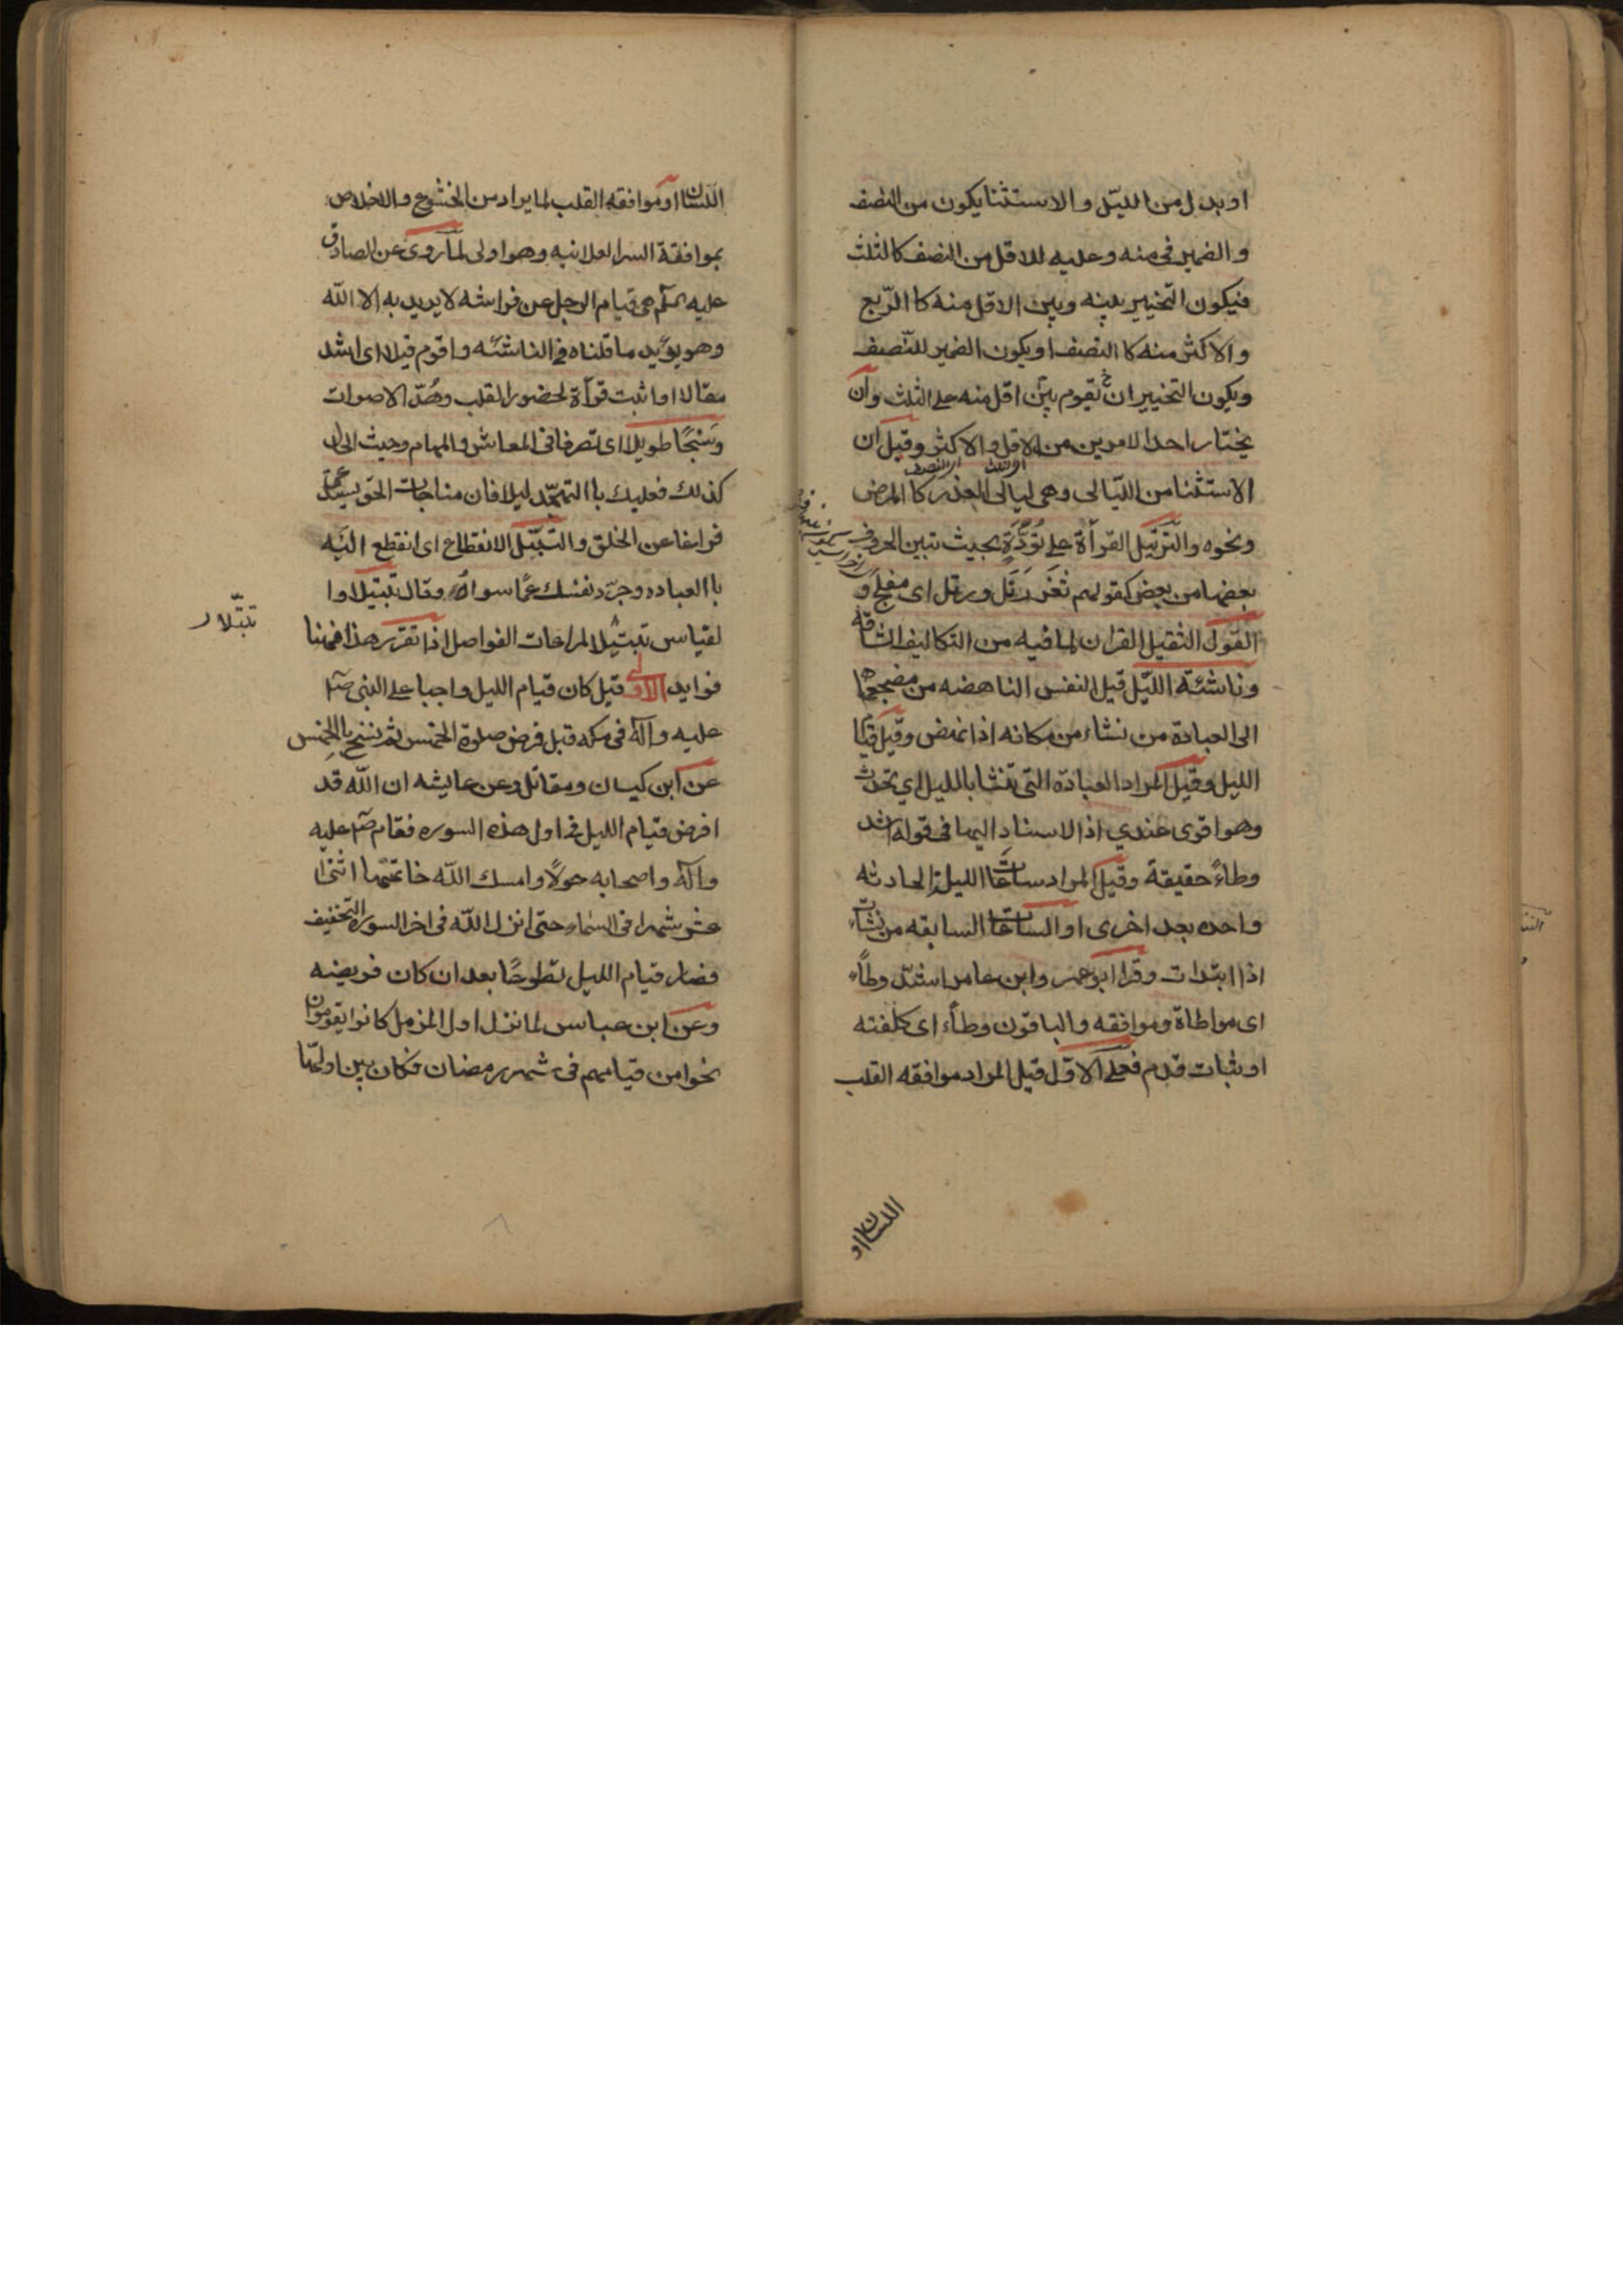 او بدل من الليّل والاستثنا يكون من النصف
والضمير فى منه وعليه للاقل من النصف كالثلث
فيكون التخيير بينه وبين الاقل منه كا الرّبع
والاكثر منه كا النصف او يكون الضمير للنّصف
ويكون التخيير ان يقوم بين اقل منه على الثلث وان
يختار احد الامرين من الاقل والاكثر وقيل ان
الاستثنا من اللّيالى وهى ليالى العذر كا المرض
ونحوه والتّرتيل القرأة على تؤدّة بحيث تبين الحروف
بعضها من بعض كقولهم ثغر رَتَل ورتل اى مفلج و
القول الثقيل القران لما فيه من التكاليف الشاقه
وناشئة اللّيل قيل النفس الناهضه من مضجعها
الى العبادة من نشاء من مكانه اذا نهض وقيل قيام
الليل وقيل المراد العبادة التى تنشا بالليل اي تحدث
وهو اقوى عندي اذ الاسناد اليها فى قوله اشد
وطاءً حقيقة وقيل المراد ساعات الليل الحادثه
واحده بعد اخرى او الساعات السابقه من نشات
اذا ابتدات وقرا ابو عمر وابن عامر اشدّ وطاًء
اى مواطاة وموافقه والباقون وطاًء اى كلفته
او ثبات قدم فعلى الاوّل قيل المراد موافقه القلب
اللسان او
اللسان او موافقه القلب لما يراد من الخشوع والاخلاص
بموافقة السر العلانيه وهو اولى لما روى عن الصادق
عليه السلم هى قيام الرجل عن فراشه لا يريد به الا الله
وهو يؤيد ما قلناه فى الناشئه واقوم قيلا اى اشد
مقالا او اثبت قرأة لحضور القلب وهُدّ الاصوات
وسَبْحًا طويلا اى تصرفا فى المعاش والمهام وحيث الحال
كذلك فعليك با التهجّد ليلا فان مناجات الحق يستدعى
فراغا عن الخلق والتبتّل الانقطاع اى انقطع اليه
با العباده وجرّد نفسك عمّا سواه وقال تبتيلا وا
تبتّلا
لقياس تبتيلا لمراعات الفواصل اذا تقرر هذا فهنا
فوايد الاولى قيل كان قيام الليل واجبا على النبى ص
عليه وآله فى مكه قبل فرض صلوة الخمس ثم نسخ بالخمس
عن ابن كيسان ومقاتل وعن عايشه ان الله قد
افرض قيام الليل فى اول هذه السوره فقام ص عليه
وآله واصحابه حولًا وامسك الله خاتمتها اثنا
عشر شهرا فى السماء حتى انزل الله فى اخر السوره التخفيف
فصار قيام الليل تطوعًا بعد ان كان فريضه
وعن ابن عباس لما نزل اول المزمل كانوا يقومون
نحوا من قيامهم فى شهر رمضان فكان بين اولها